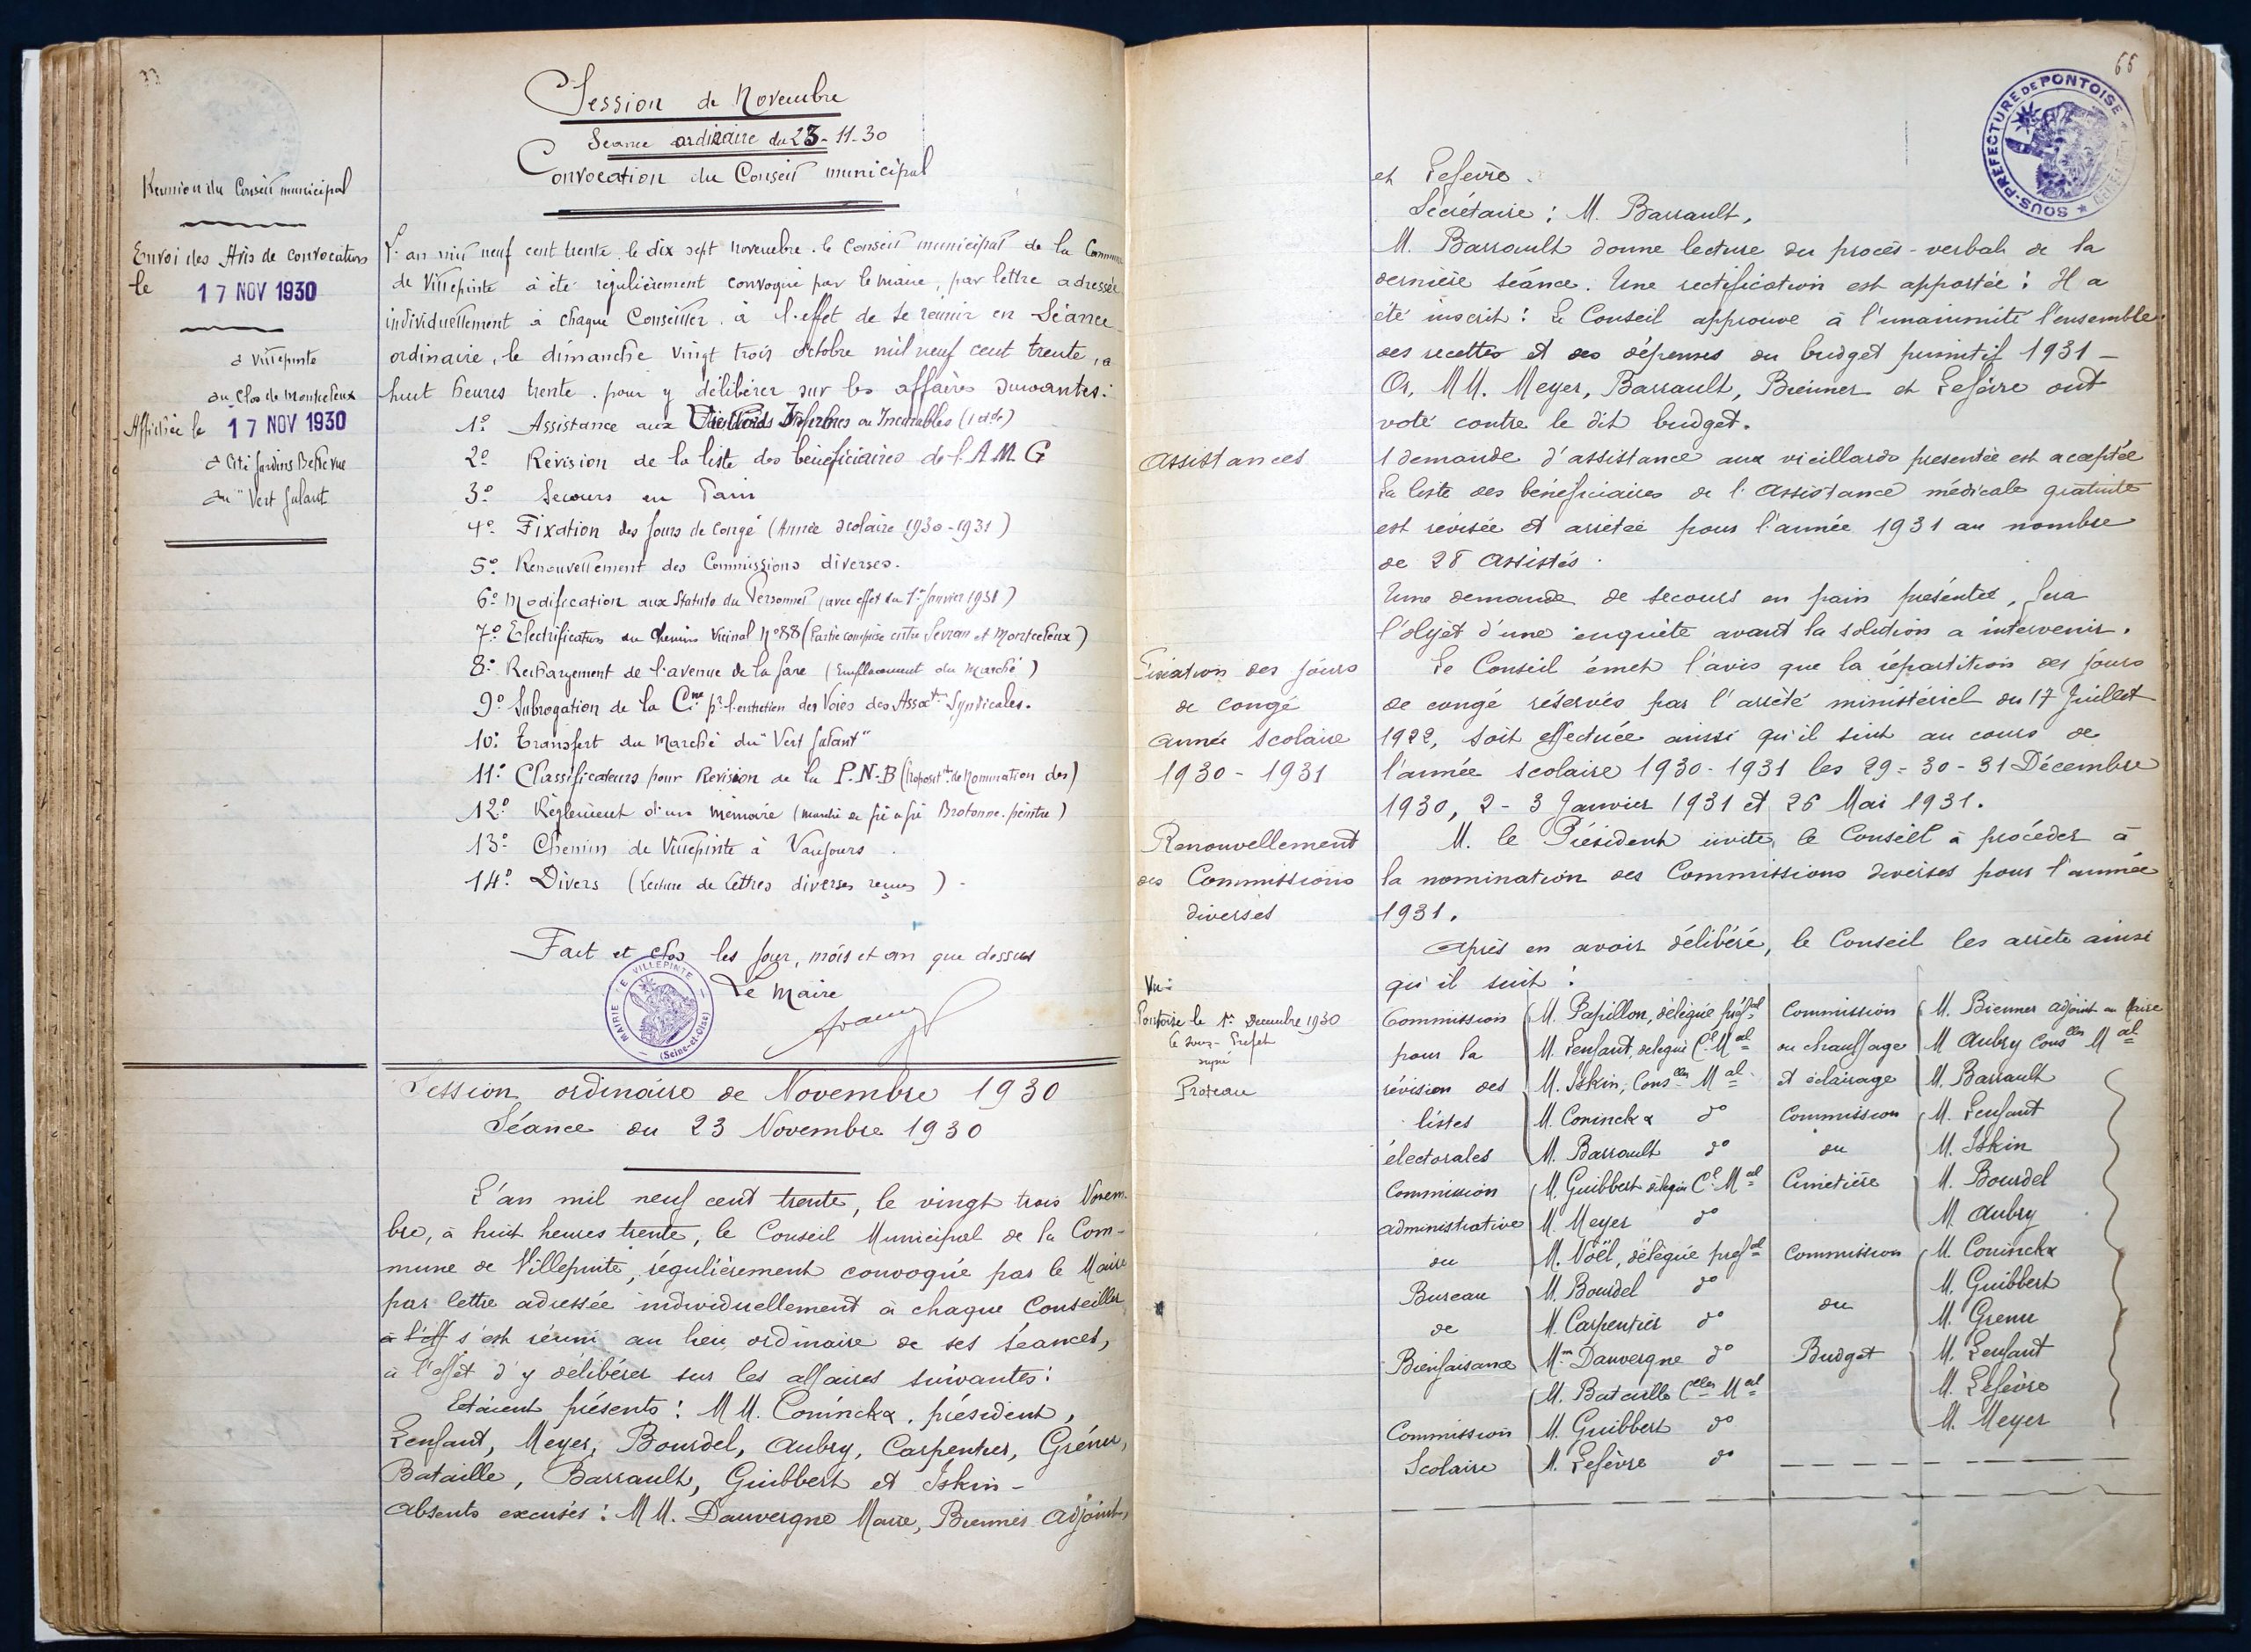 33
Session de Novembre
Seance ordinaire du 23-11-30
Convocation du Conseil municipal
Reunion du Conseil municipal
Envoi des Avis de convocation
le 17 NOV 1930
à Villepinte
au Clos de Montceleux
Affichée le 17 NOV 1930
à Cité Jardins Bellevue
au "Vert Galant
L'an mil neuf cent trente, le dix sept novembre, le Conseil municipal de la Commune
de Villepinte à été régulièrement convoqué par le maire, par lettre adressée
individuellement à chaque Conseiller, à l'effet de se réunir en Séance
ordinaire, le dimanche vingt trois octobre mil neuf cent trente, à
huit heures trente, pour y délibérer sur les affaires suivantes:
1º Assistance aux Vieillards Infirmes ou Incurables (1 dde)
2º Révision de la liste des bénéficiaires de l'A M G
3º Secours en Pain
4º Fixation des Jours de Congé (Année scolaire 1930-1931)
5º Renouvellement des Commissions diverses.
6º Modification aux Statuts du Personnel (avec effet du 1er Janvier 1931)
7º Electrification du Chemin Vicinal Nº 88 (Partie comprise entre Sevran et Montceleux)
8º Rechargement de l'avenue de la Gare (Emplacement du Marché)
9º Subrogation de la Cne pr l'entretien des Voies des Assoctns Syndicales.
10º Transfert du Marché du "Vert Galant"
11º Classificateurs pour Revision de la P-N-B (Proposit.on de Nomination des)
12º Règlement d'un mémoire (marché de gré à gré Brotonne. peintre)
13º Chemin de Villepinte à Vaujours
14º Divers (Lecture de lettres diverses reçues)-
Fait et clos les jour, mois et an que dessus
Le Maire
MAIRIE DE VILLEPINTE
(Seine-et-Oise)
Session ordinaire de Novembre 1930
Séance du 23 Novembre 1930
L'an mil neuf cent trente, le vingt trois Novem-
bre, à huit heures trente, le Conseil Municipal de la Com-
mune de Villepinte, régulièrement convoqué par le Maire
par lettre adressée individuellement à chaque Conseiller
à l'eff s'est réuni au lieu ordinaire de ses séances,
à l'effet d'y délibérer sur les affaires suivantes:
Etaient présents: MM. Coninckx, président,
Lenfant, Meyer, Bourdel, Aubry, Carpentier, Grénu,
Bataille, Barrault, Guibbert et Iskin-
Absents excusés: MM. Dauvergne Maire, Brenner Adjoint,
66
SOUS-PREFECTURE DE PONTOISE
et Lefèvre.
Secrétaire: M. Barrault,
M. Barrault donne lecture du procès-verbal de la
dernière séance. Une rectification est apportée: Il a
été inscrit: Le Conseil approuve à l'unanimité l'ensemble
des recettes et des dépenses du budget primitif 1931-
Or, MM. Meyer, Barrault, Brenner et Lefèvre ont
voté contre le dit budget.
Assistances
1 demande d'assistance aux vieillards présentée est acceptée
La liste des bénéficiaires de l'Assistance médicale gratuite
est révisée et arrêtée pour l'année 1931 au nombre
de 28 Assistés.
Une demande de secours en pain présentée, fera
l'objet d'une enquête avant la solution a intervenir.
Fixation des jours
de congé
Année Scolaire
1930-1931
Le Conseil émet l'avis que la répartition des jours
de congé réservés par l'arrêté ministériel du 17 Juillet
1922, soit effectuée ainsi qu'il suit au cours de
l'année scolaire 1930-1931 les 29-30-31 Décembre
1930, 2-3 Janvier 1931 et 26 Mai 1931.
Renouvellement
des Commissions
diverses
M. le Président invite, le Conseil à procéder à
la nomination des Commissions diverses pour l'année
1931.
Après en avoir délibéré, le Conseil les arrête ainsi
qu'il suit:
Vu:
Pontoise le 1er Décembre 1930
le Sous-Préfet
signé
Proteau
Commission pour la révision des listes électorales
M. Papillon, délégué préfal
M. Lenfant, délégué Cl Mal
M. Iskin, Consller Mal
M. Coninckx do
M. Barrault do
Commission administrative du Bureau de Bienfaisance
M. Guibbert délégué Cl Mal
M. Meyer do
M. Noël, délégué préfal
M. Bourdel do
M. Carpentier do
Mme Dauvergne do
Commission Scolaire
M. Bataille Celler Mal
M. Guibbert do
M. Lefèvre do
Commission du chauffage et éclairage
M. Brenner adjoint au Maire
M Aubry Conseller Mal
M. Barrault
Commission du Cimetière
M. Lenfant
M. Iskin
M. Bourdel
M Aubry
Commission du Budget
M. Coninckx
M. Guibbert
M. Grenu
M. Lenfant
M. Lefèvre
M. Meyer